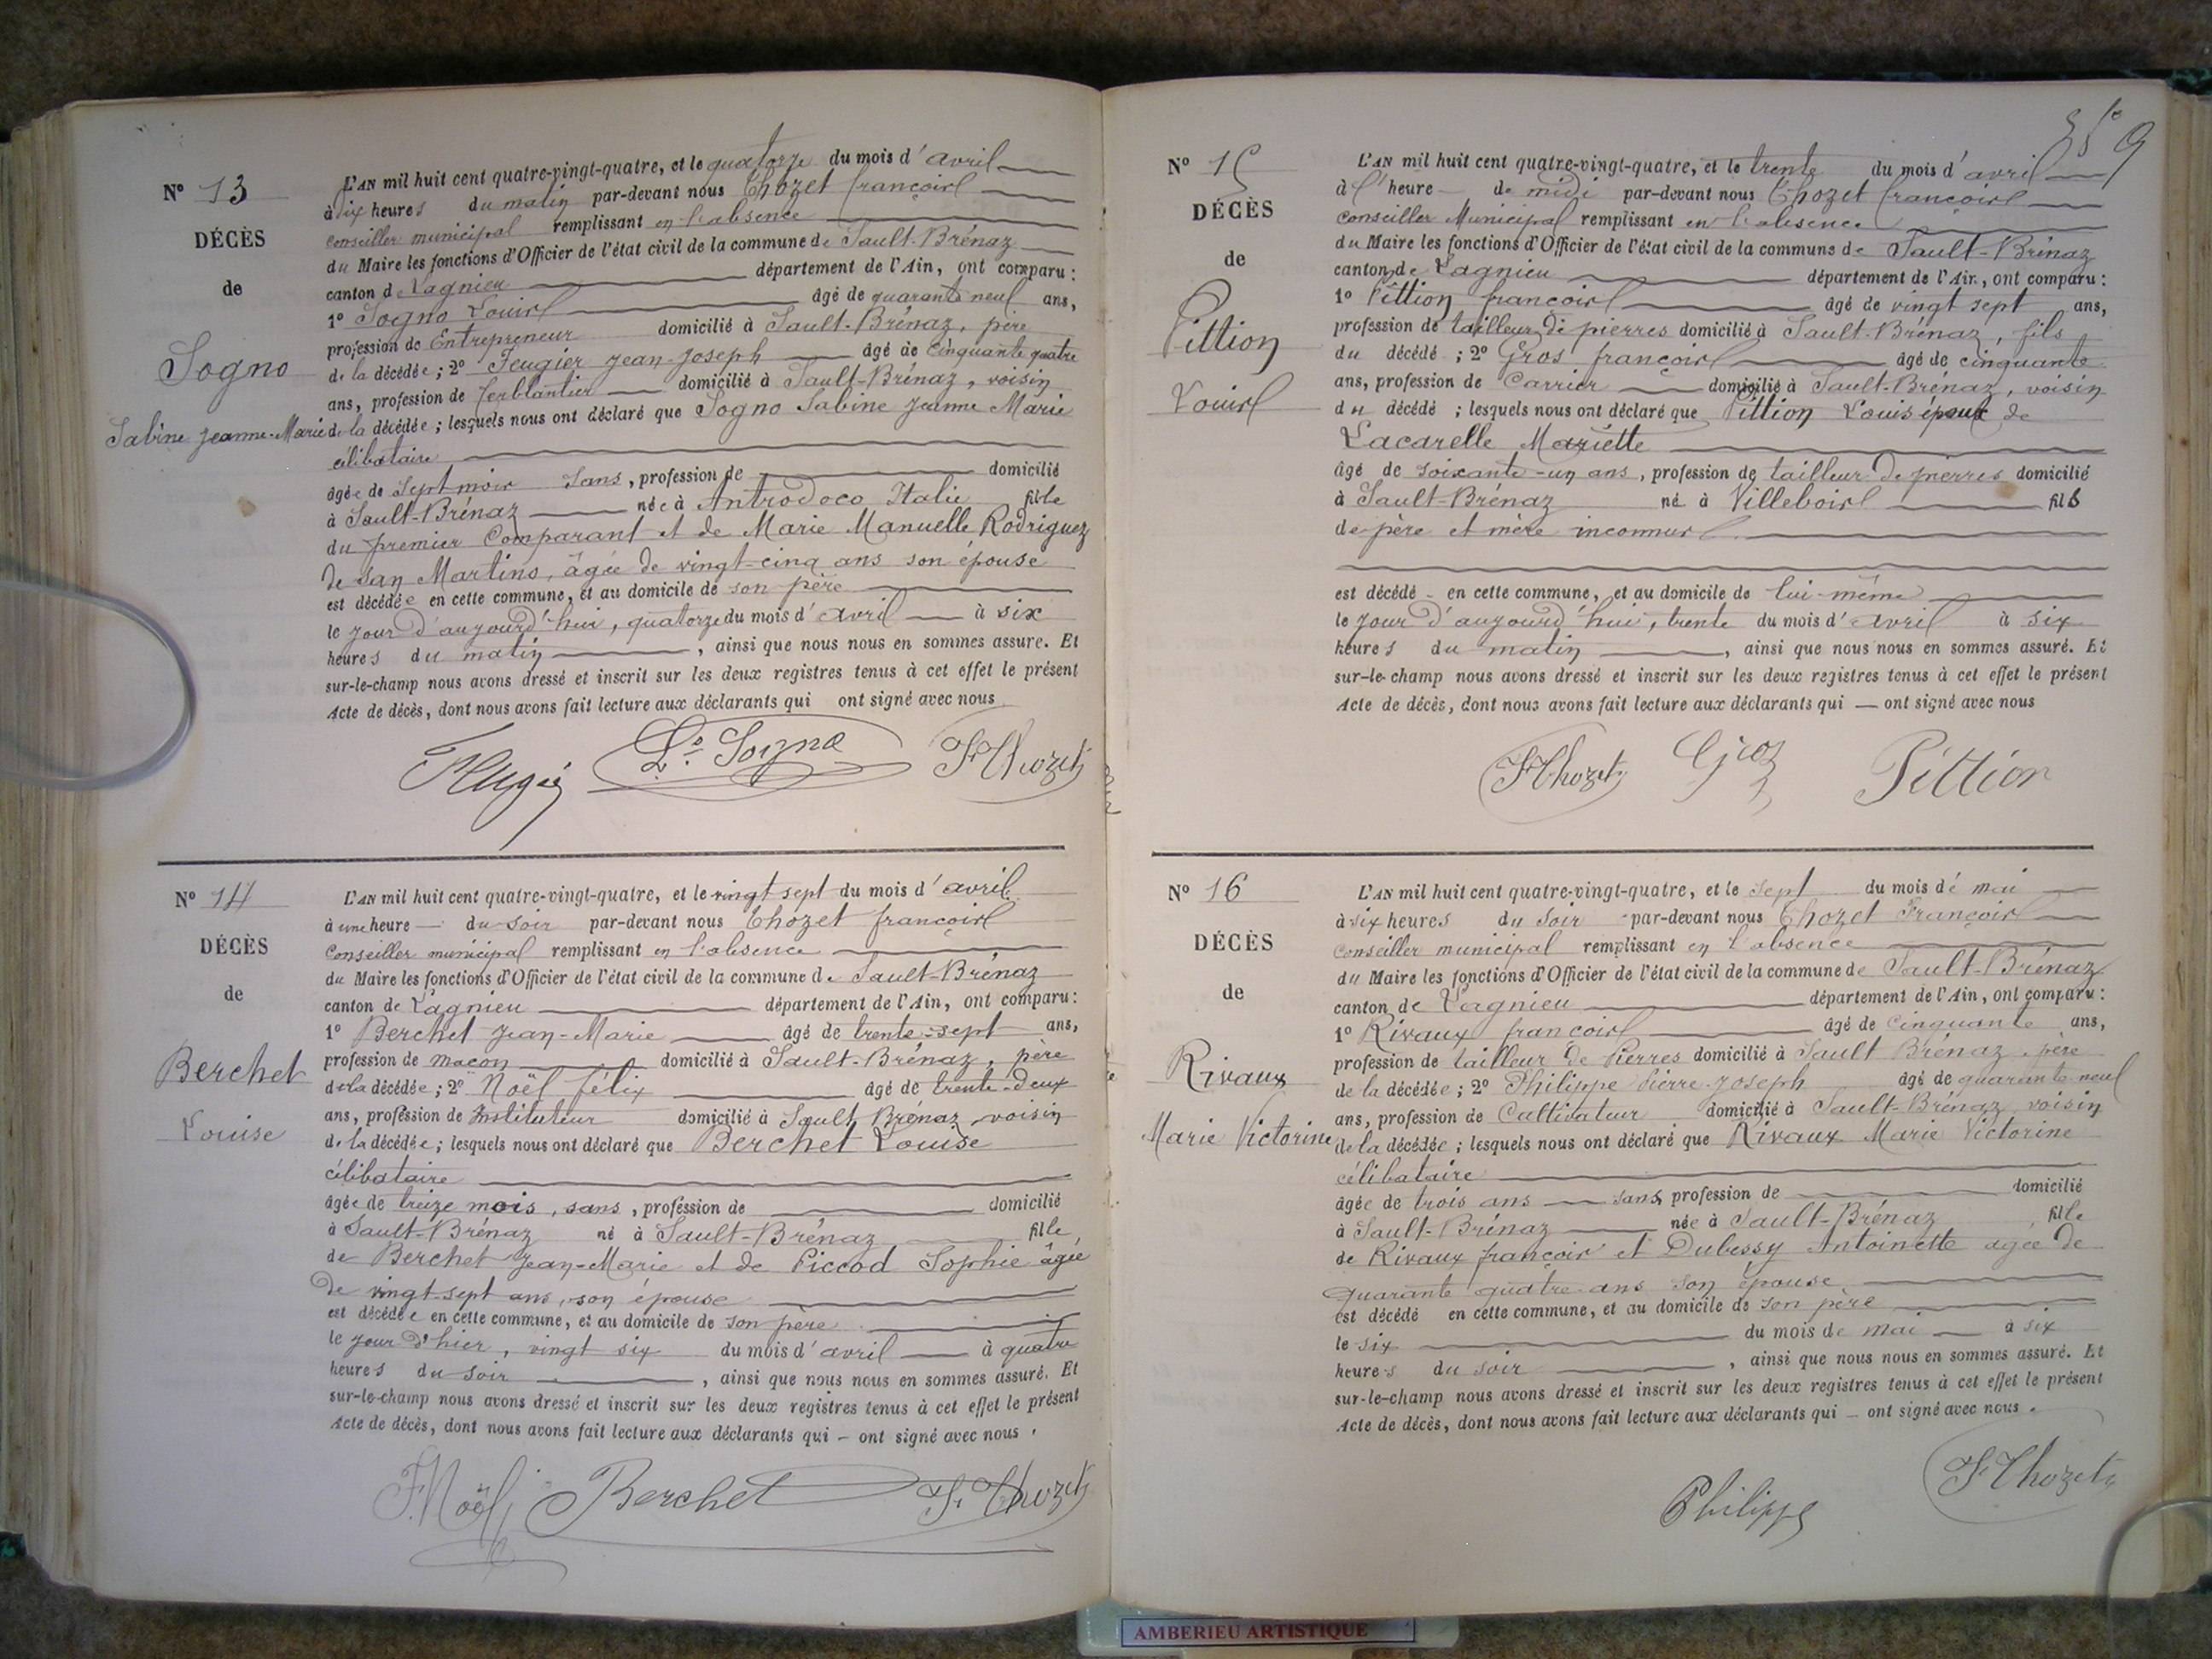 N° 13
DÉCÈS
de
Sogno
Sabine Jeanne-Marie
L'AN mil huit cent quatre-vingt-quatre, et le quatorze du mois d'avril
à dix heures du matin par-devant nous Thozet françois
conseiller municipal remplissant en l'absence
du Maire les fonctions d'Officier de l'état civil de la commune de Sault-Brénaz
canton de Lagnieu département de l'Ain, ont comparu :
1° Sogno Louis âgé de quarante neuf ans,
profession de Entrepreneur domicilié à Sault-Brénaz, père
de la décédée ; 2° Feugier Jean-Joseph âgé de cinquante quatre
ans, profession de ferblantier domicilié à Sault-Brénaz, voisin
de la décédée ; lesquels nous ont déclaré que Sogno Sabine Jeanne Marie
célibataire
âgée de Sept mois sans, profession de domicilié
à Sault-Brénaz née à Antrodoco Italie fille
du premier Comparant et de Marie Manuelle Rodriguez
de San Martino, âgée de vingt-cinq ans son épouse
est décédée en cette commune, et au domicile de son père
le jour d'aujourd'hui, quatorze du mois d'avril à six
heures du matin, ainsi que nous nous en sommes assuré. Et
sur-le-champ nous avons dressé et inscrit sur les deux registres tenus à cet effet le présent
Acte de décès, dont nous avons fait lecture aux déclarants qui ont signé avec nous
Ls. Sogno F Thozet
N° 14
DÉCÈS
de
Berchet
Louise
L'AN mil huit cent quatre-vingt-quatre, et le vingt sept du mois d'avril
à une heure du soir par-devant nous Thozet françois
Conseiller municipal remplissant en l'absence
du Maire les fonctions d'Officier de l'état civil de la commune de Sault-Brénaz
canton de Lagnieu département de l'Ain, ont comparu :
1° Berchet Jean-Marie âgé de trente-sept ans,
profession de maçon domicilié à Sault-Brénaz, père
de la décédée ; 2° Noël félix âgé de trente-deux
ans, profession de Instituteur domicilié à Sault Brénaz, voisin
de la décédée ; lesquels nous ont déclaré que Berchet Louise
célibataire
âgée de treize mois, sans, profession de domicilié
à Sault-Brénaz né à Sault-Brénaz fille
de Berchet Jean-Marie et de Piccod Sophie âgée
de vingt-sept ans, son épouse
est décédée en cette commune, et au domicile de son père
le jour d'hier, vingt six du mois d'avril à quatre
heures du soir, ainsi que nous nous en sommes assuré. Et
sur-le-champ nous avons dressé et inscrit sur les deux registres tenus à cet effet le présent
Acte de décès, dont nous avons fait lecture aux déclarants qui – ont signé avec nous.
F. Noël Berchet F. Thozet
9
N° 15
DÉCÈS
de
Pittion
Louis
L'AN mil huit cent quatre-vingt-quatre, et le trente du mois d'avril
à l'heure de midi par-devant nous Thozet françois
Conseiller Municipal remplissant en l'absence
du Maire les fonctions d'Officier de l'état civil de la commune de Sault-Brénaz
canton de Lagnieu département de l'Ain, ont comparu :
1° Pittion françois âgé de vingt sept ans,
profession de tailleur de pierres domicilié à Sault-Brénaz, fils
du décédé ; 2° Gros françois âgé de cinquante
ans, profession de Carrier domicilié à Sault-Brénaz, voisin
du décédé ; lesquels nous ont déclaré que Pittion Louis époux de
Lacarelle Mariette
âgé de soixante-un ans, profession de tailleur de pierres domicilié
à Sault-Brénaz né à Villebois fils
de père et mère inconnus
est décédé en cette commune, et au domicile de lui-même
le jour d'aujourd'hui, trente du mois d'avril à six
heures du matin, ainsi que nous nous en sommes assuré. Et
sur-le-champ nous avons dressé et inscrit sur les deux registres tenus à cet effet le présent
Acte de décès, dont nous avons fait lecture aux déclarants qui — ont signé avec nous
F Thozet Gros Pittion
N° 16
DÉCÈS
de
Rivaux
Marie Victorine
L'AN mil huit cent quatre-vingt-quatre, et le Sept du mois de mai
à six heures du soir par-devant nous Thozet François
Conseiller municipal remplissant en l'absence
du Maire les fonctions d'Officier de l'état civil de la commune de Sault-Brénaz
canton de Lagnieu département de l'Ain, ont comparu :
1° Rivaux françois âgé de Cinquante ans,
profession de tailleur de Pierres domicilié à Sault Brénaz, père
de la décédée ; 2° Philippe Pierre-Joseph âgé de quarante neuf
ans, profession de Cultivateur domicilié à Sault-Brénaz, voisin
de la décédée ; lesquels nous ont déclaré que Rivaux Marie Victorine
célibataire
âgée de trois ans sans profession de domicilié
à Sault-Brénaz née à Sault-Brénaz fille
de Rivaux françois et Dubessy Antoinette agée de
quarante quatre ans son épouse
est décédé en cette commune, et au domicile de son père
le six du mois de mai à six
heures du soir, ainsi que nous nous en sommes assuré. Et
sur-le-champ nous avons dressé et inscrit sur les deux registres tenus à cet effet le présent
Acte de décès, dont nous avons fait lecture aux déclarants qui – ont signé avec nous.
Philippe F Thozet
AMBERIEU ARTISTIQUE